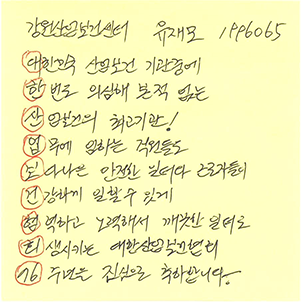 강원산업보건센터 유재모 1996065
대한민국 산업보건 기관중에
한번도 의심해 본적 없는
산업보건의 최고기관!
업무에 임하는 직원들도
보다나은 안전한 일터다 근로자들이
건강하게 일할 수 있게
협력하고 노력해서 깨끗한 일터도
회생시키는 대한산업보건협회
76주년은 진심으로 축하합니다.